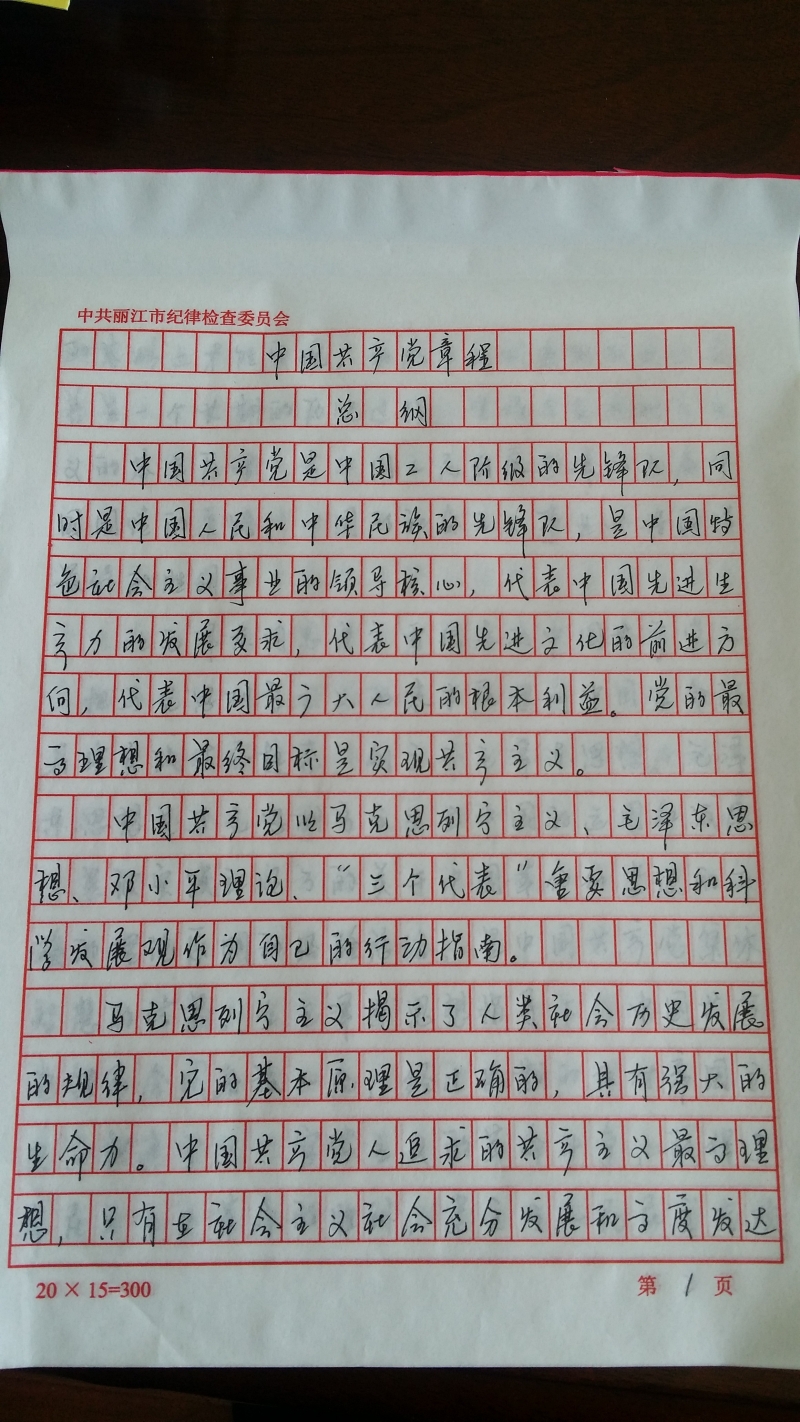 中共丽江市纪律检查委员会
中国共产党章程
总 纲
中国共产党是中国工人阶级的先锋队，同
时是中国人民和中华民族的先锋队，是中国特
色社会主义事业的领导核心，代表中国先进生
产力的发展要求，代表中国先进文化的前进方
向，代表中国最广大人民的根本利益。党的最
高理想和最终目标是实现共产主义。
中国共产党以马克思列宁主义、毛泽东思
想、邓小平理论、“三个代表”重要思想和科
学发展观作为自己的行动指南。
马克思列宁主义揭示了人类社会历史发展
的规律，它的基本原理是正确的，具有强大的
生命力。中国共产党人追求的共产主义最高理
想，只有在社会主义社会充分发展和高度发达
20 × 15=300
第 1 页